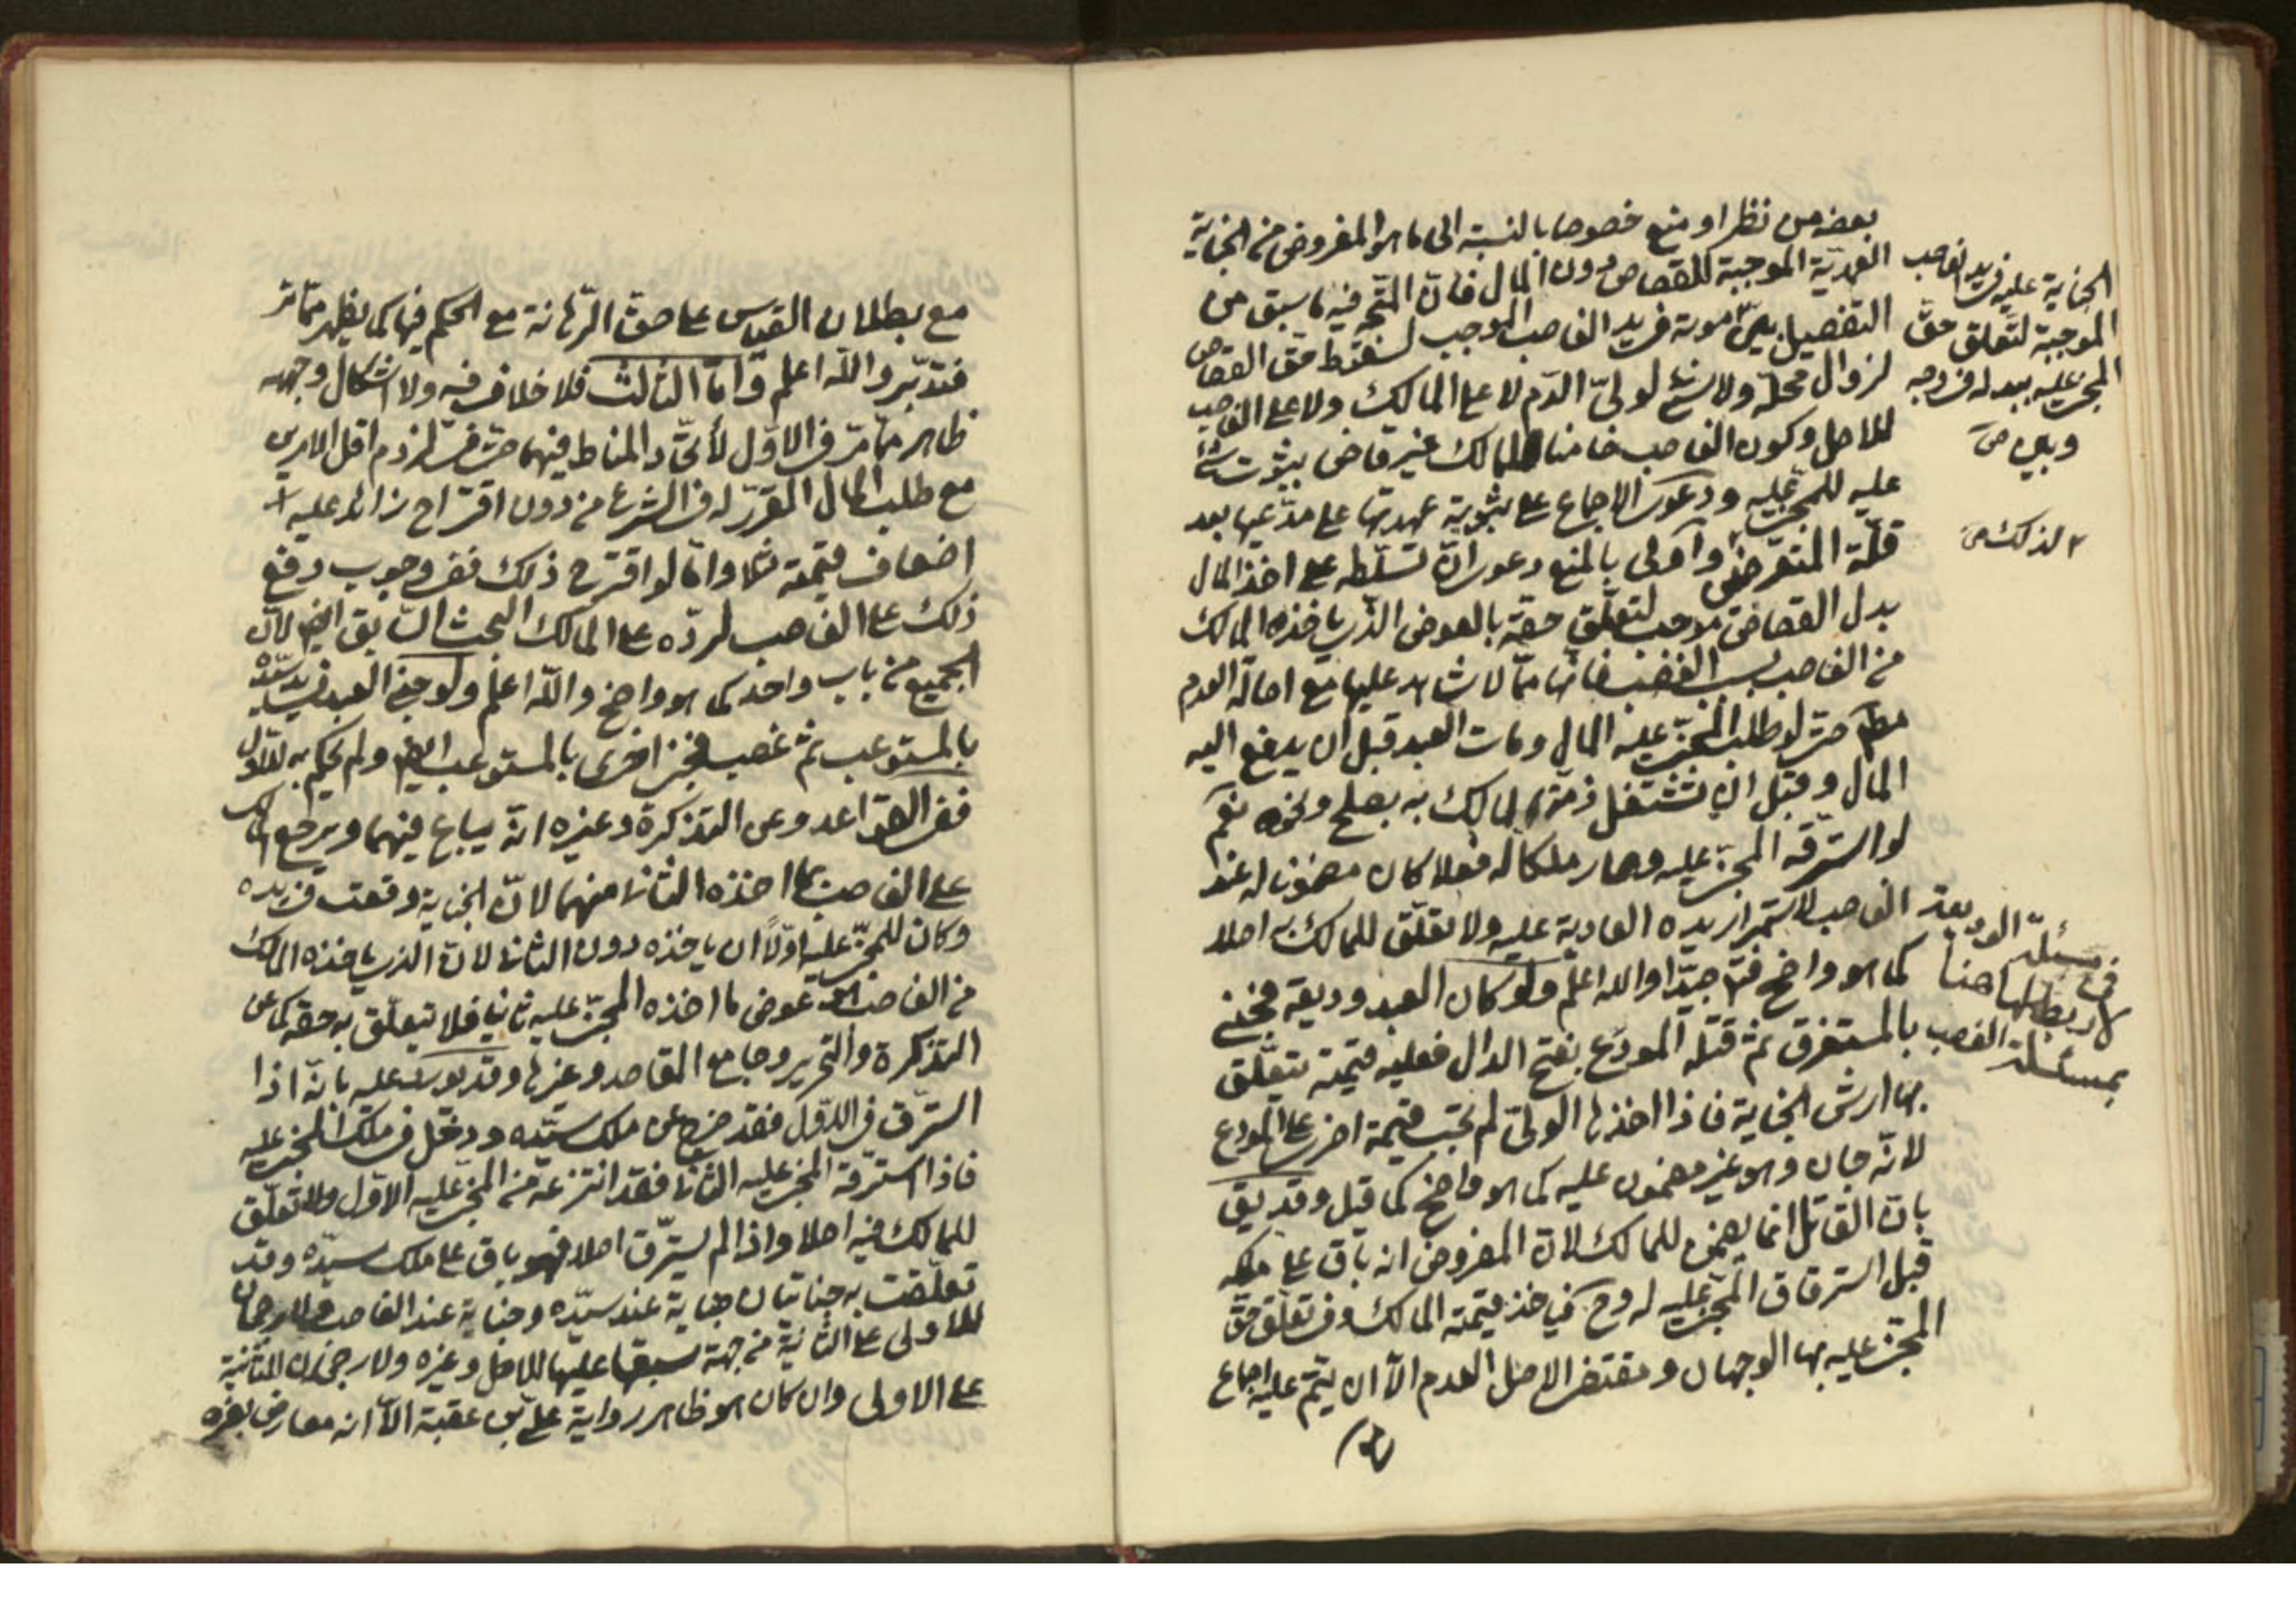 بعضه من نظر او منع خصوصا بالنسبة الى ما هو المفروض من الجناية
العمدية الموجبة للقصاص دون المال فان المتجه فيه ما سبق من
التفصيل بين موته فى يد الغاصب الموجب لسقوط حق القصاص
لزوال محله ولا شئ لولى الدم لا على المالك ولا على الغاصب
للاصل وكون الغاصب ضامنا للمالك غير قاض بثبوت شئ
عليه للمجنى عليه ودعوى الاجماع على ثبوته عهدتها على مدعيها بعد
قلة المتعرض واولى بالمنع دعوى ان تسلطه على اخذ المال
بدل القصاص موجب لتعلق حقه بالعوض الذى ياخذه المالك
من الغاصب بسبب الغصب فانها مما لا شاهد عليها مع اصالة العدم
حتى لو طلب المجنى عليه المال ومات العبد قبل ان يدفع اليه
المال وقبل ان تشتغل ذمة المالك به بصلح ونحوه نعم
لو استرقه المجنى عليه وصار ملكا له فعلا كان مضمونا له عند
الغاصب لاستمرار يده العادية عليه ولا تعلق للمالك به اصلا
كما هو واضح جيدا والله اعلم ولو كان العبد وديعة فجنى
بالمستغرق ثم قتله المودع بفتح الدال فعليه قيمته يتعلق
بها ارش الجناية فاذا اخذها الولى لم تجب قيمة اخرى على المودع
لانه جان وهو غير مضمون عليه كما هو واضح كما قيل وقد يق
بان القاتل انما يضمن للمالك لان المفروض انه باق على ملكه
قبل استرقاق المجنى عليه له وح فياخذ قيمته المالك وفى تعلق حق
المجنى عليه بها الوجهان ومقتضى الاصل العدم الا ان يتم عليه اجماع
الجناية عليه فى يد الغاصب
الموجبة لتعلق حق
المجنى عليه ببدله فى وجه
وبين ص
الذلك ص
فى مسئلة الوديعة
لا ربط لها هنا
بمسئلة الغصب
مع بطلان القياس على حق الرهانة مع الحكم فيها كما يظهر مما مر
فتدبر والله اعلم واما الثالث فلا خلاف فيه ولا اشكال وجهه
ظاهر مما مر فى الاول لاتحاد المناط فيهما حتى فى لزوم اقل الامرين
مع طلب المال المقرر له فى الشرع من دون اقتراح زائد عليه
اضعاف قيمته مثلا واما لو اقترح ذلك ففى وجوب دفع
ذلك على الغاصب لرده على المالك البحث السابق ايض لان
الجميع من باب واحد كما هو واضح والله اعلم ولو جنى العبد فى يد سيده
بالمستوعب ثم غصب فجنى اخرى بالمستوعب ايض ولم يحكم به للاول
ففى القواعد وعن التذكرة وغيره انه يباع فيهما ويرجع المالك
على الغاصب بما اخذه الثانى منهما لان الجناية وقعت فى يده
وكان للمجنى عليه اولا ان ياخذه دون الثانى لان الذى ياخذه المالك
من الغاصب هو عوض ما اخذه المجنى عليه ثانيا فلا يتعلق به حقه كما عن
التذكرة والتحرير وجامع المقاصد وغيرها وقد يورد عليه بانه اذا
استرق فى الاول فقد خرج عن ملك سيده ودخل فى ملك المجنى عليه
فاذا استرقه المجنى عليه الثانى فقد انتزعه من المجنى عليه الاول ولا تعلق
للمالك فيه اصلا واذا لم يسترق اصلا فهو باق على ملك سيده وقد
تعلقت به جنايتان جناية عند سيده وجناية عند الغاصب ولا رجحان
للاولى على الثانية من جهة سبقها عليها للاصل وغيره ولا رجحان للثانية
على الاولى وان كان هو ظاهر رواية على بن عقبة الا انه معارض بغيره